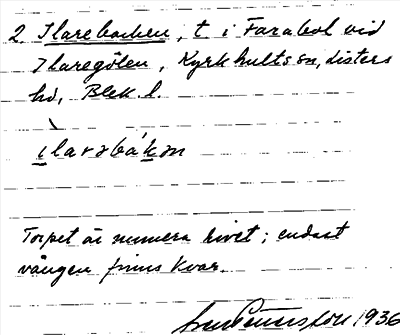 2. Ilarebacken, t i Farabol vid
Ilaregölen, Kyrkhults sn, Listers
hd, Blek. l.
ìlarəbákən
Torpet är numera rivet; endast
vången finns kvar.
1936